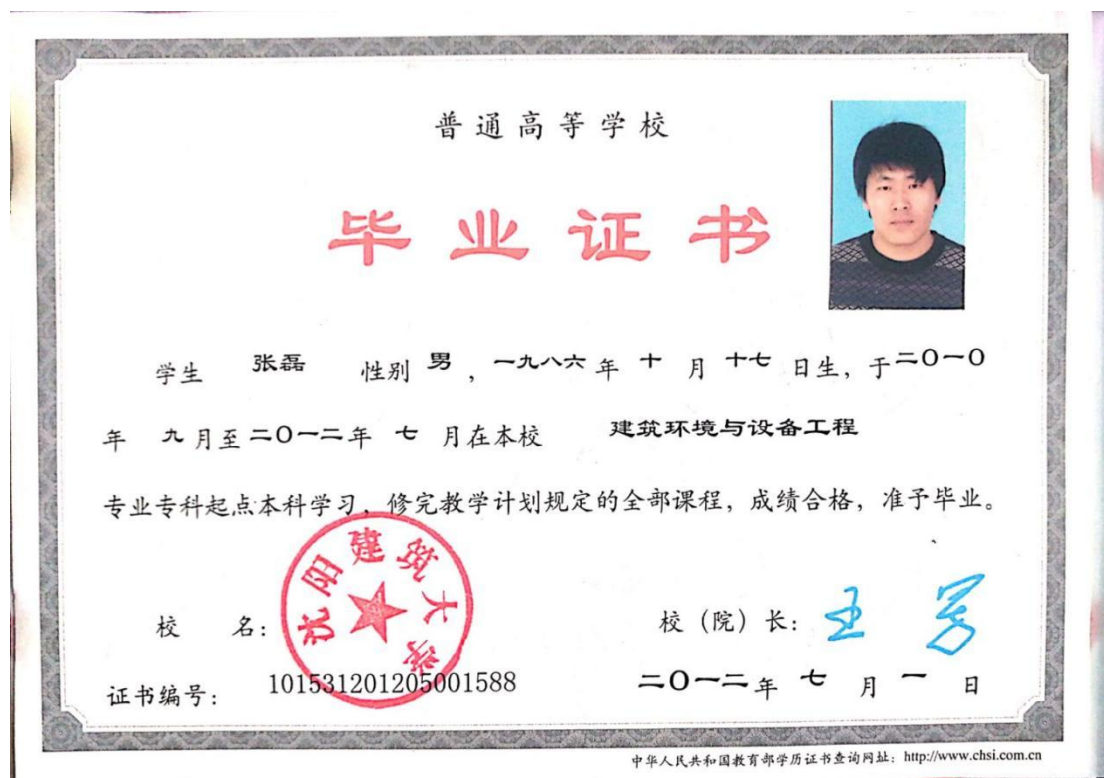 普通高等学校
毕业证书
学生 张磊 性别 男 ，一九八六 年 十 月 十七 日生，于二O一O
年 九 月至 二O一二 年 七 月在本校 建筑环境与设备工程
专业专科起点本科学习，修完教学计划规定的全部课程，成绩合格，准予毕业。
沈阳建筑大学
校 名：
校（院）长：
证书编号： 101531201205001588
二O一二 年 七 月 一 日
中华人民共和国教育部学历证书查询网址：http://www.chsi.com.cn